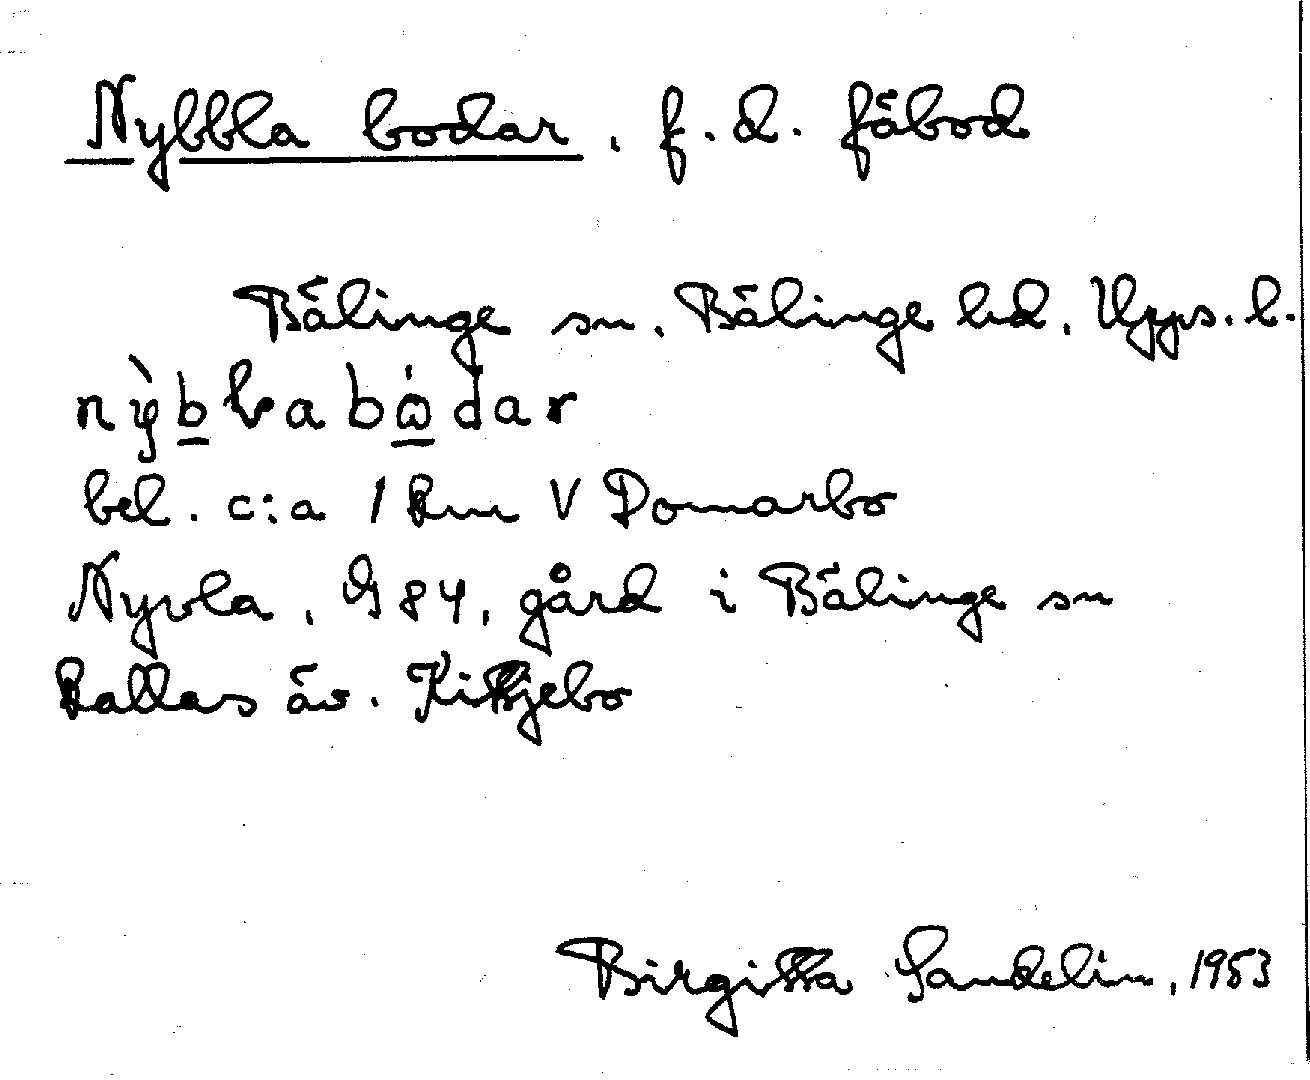 Nybbla bodar, f.d. fäbod
Bälinge sn, Bälinge hd, Upps. l.
bel. c:a 1 km V Domarbo
Nyvla, G 84, gård i Bälinge sn
kallas äv. Kittjebo
Birgitta Sandelin, 1953